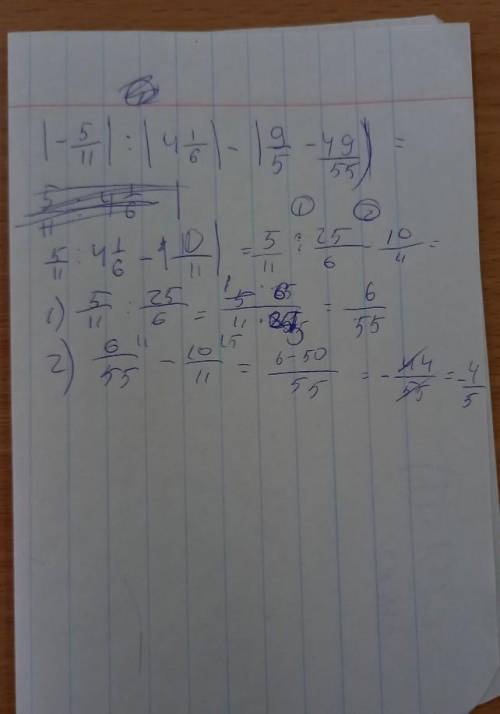 |-5/11| : |4 1/6| - |9/5 - 49/55| =
5/11 : 4 1/6 - |10/11| = 5/11 : 25/6 - 10/11 =
1) 5/11 : 25/6 = 5 · 6/11 · 25 = 6/55
2) 6/55 - 10/11 = 6-50/55 = -44/55 = -4/5